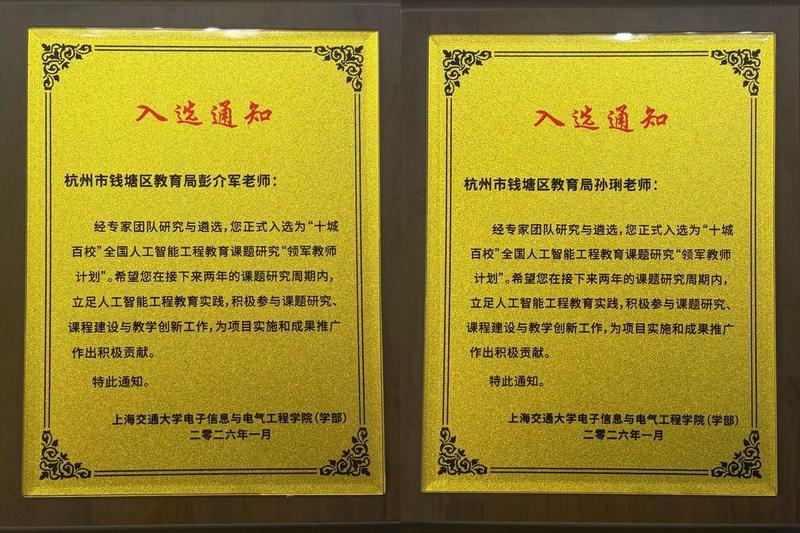 入选通知
杭州市钱塘区教育局彭介军老师：
经专家团队研究与遴选，您正式入选为“十城
百校”全国人工智能工程教育课题研究“领军教师
计划”。希望您在接下来两年的课题研究周期内，
立足人工智能工程教育实践，积极参与课题研究、
课程建设与教学创新工作，为项目实施和成果推广
作出积极贡献。
特此通知。
上海交通大学电子信息与电气工程学院（学部）
二零二六年一月
入选通知
杭州市钱塘区教育局孙琍老师：
经专家团队研究与遴选，您正式入选为“十城
百校”全国人工智能工程教育课题研究“领军教师
计划”。希望您在接下来两年的课题研究周期内，
立足人工智能工程教育实践，积极参与课题研究、
课程建设与教学创新工作，为项目实施和成果推广
作出积极贡献。
特此通知。
上海交通大学电子信息与电气工程学院（学部）
二零二六年一月